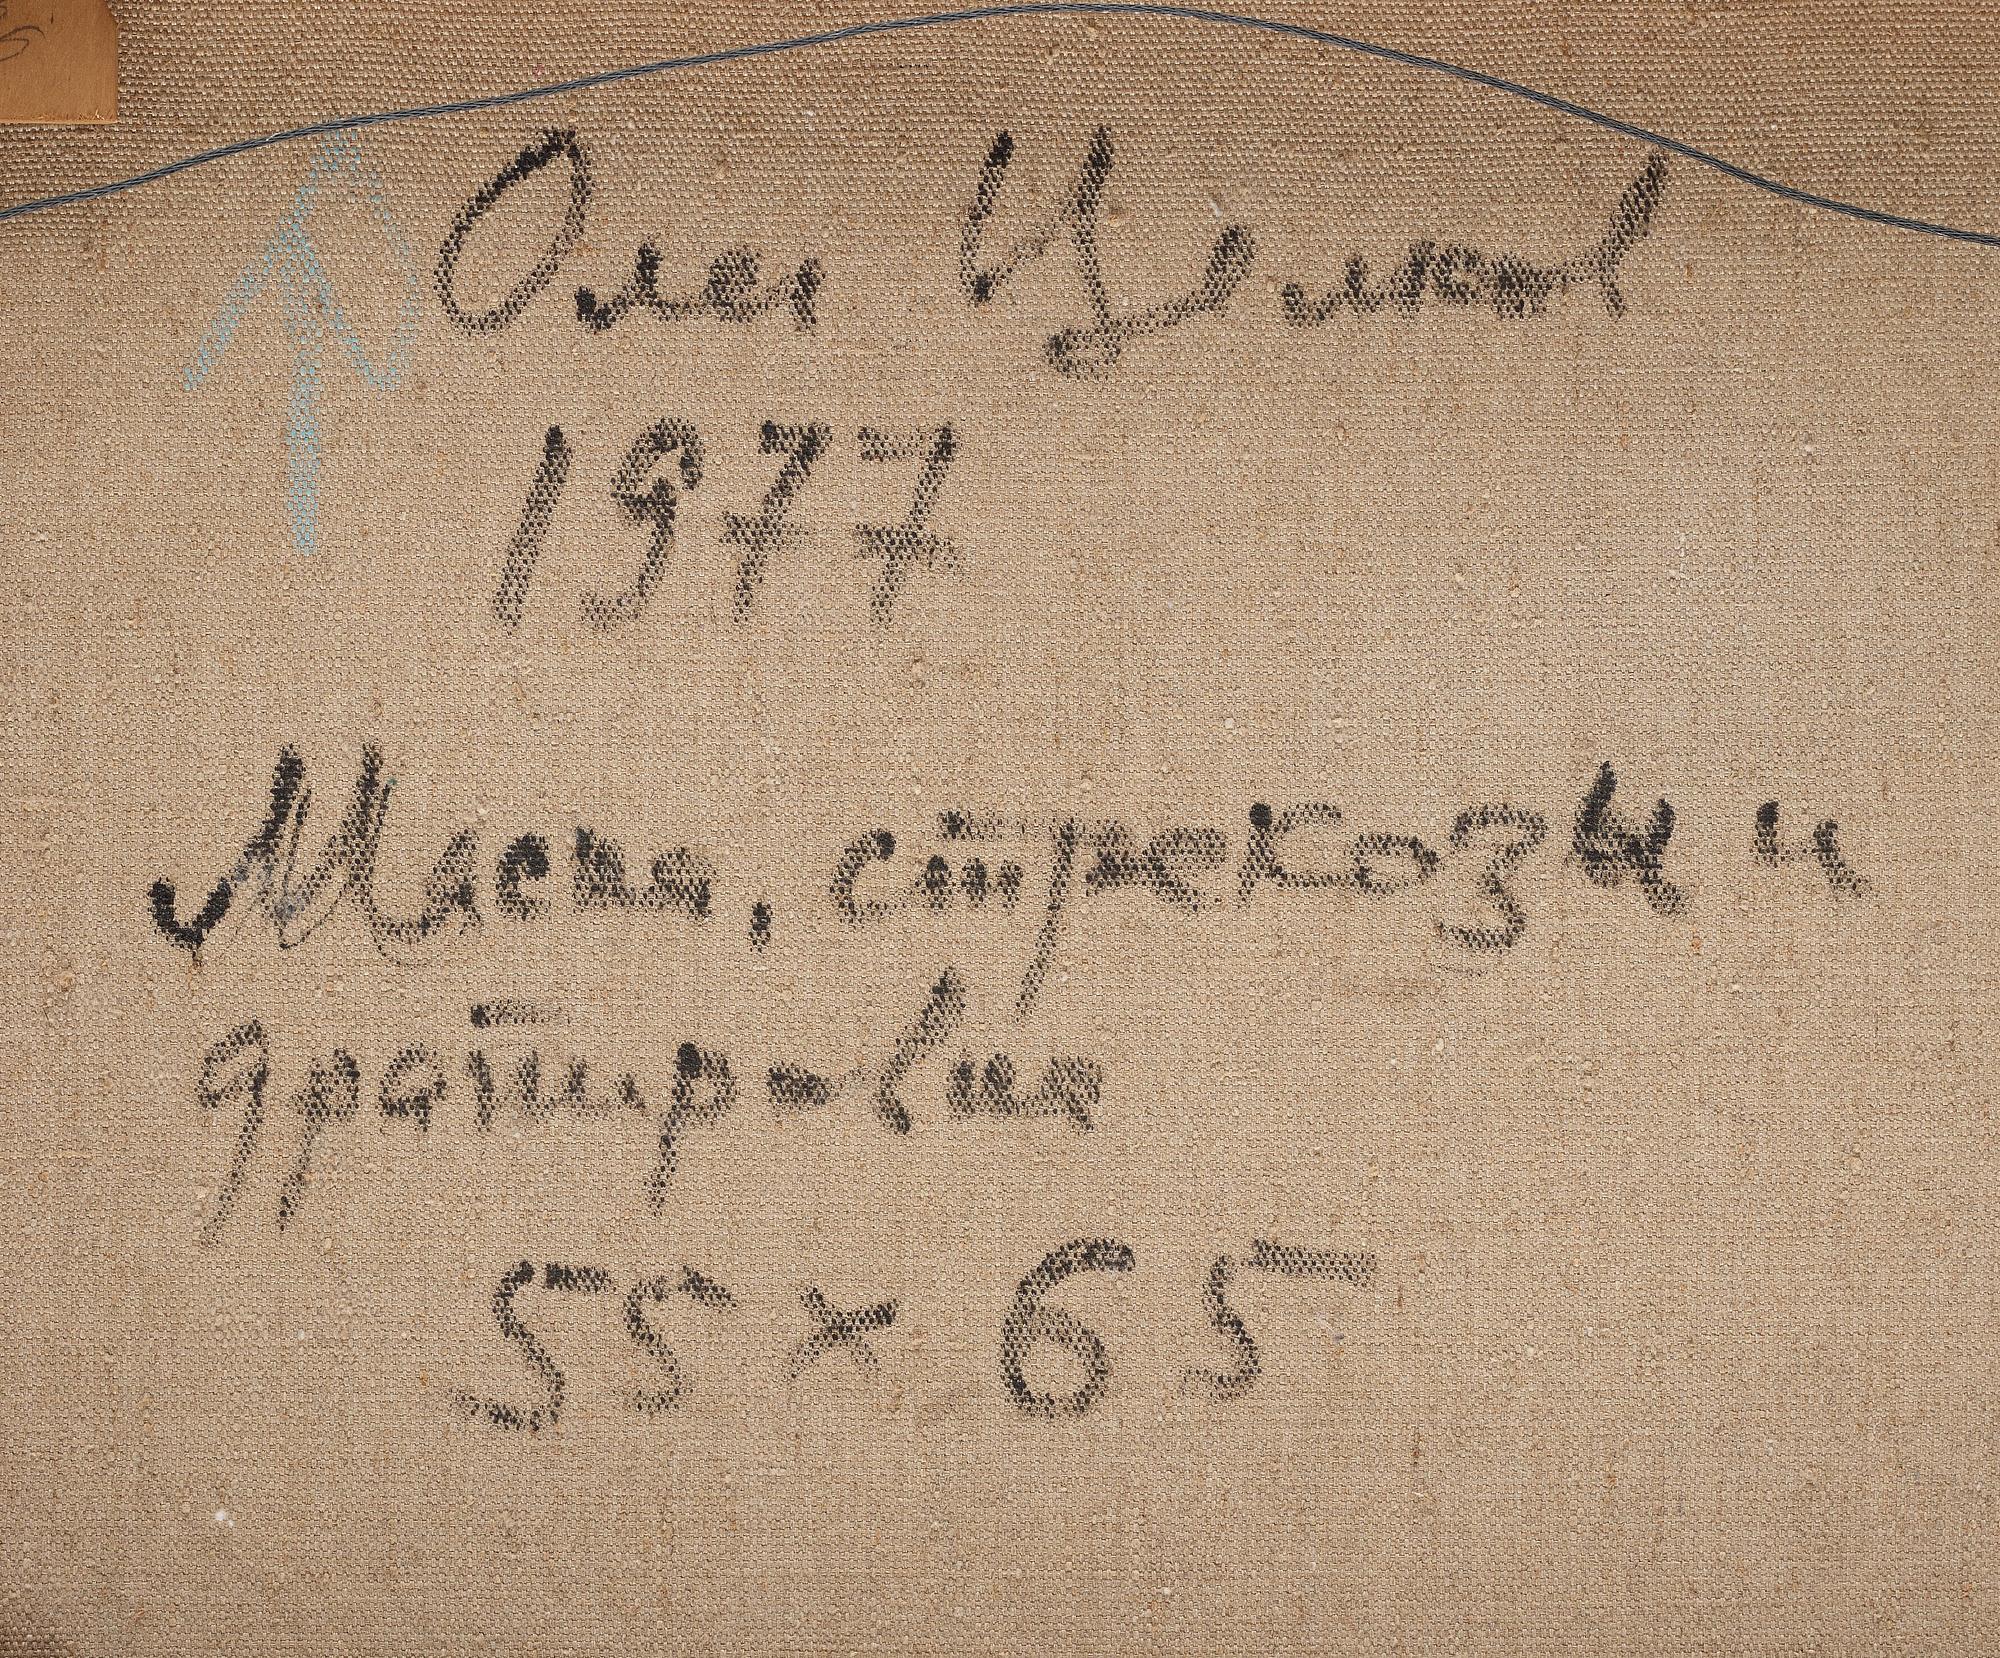 Олег Целков
1977
Маска, стрекозы и
драпир-вка
55 × 65